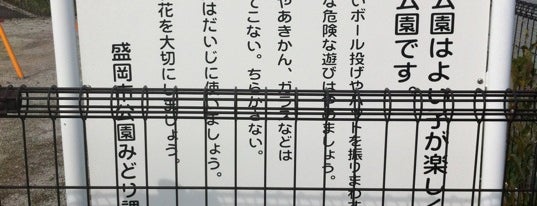 公園はよい子が楽しく
公園です。
いボール投げやバットを振りまわす
な危険な遊びはやめましょう。
やあきかん、ガラスなどは
てこない。ちらかさない。
はだいじに使いましょう。
花を大切にしましょう。
盛岡市公園みどり課